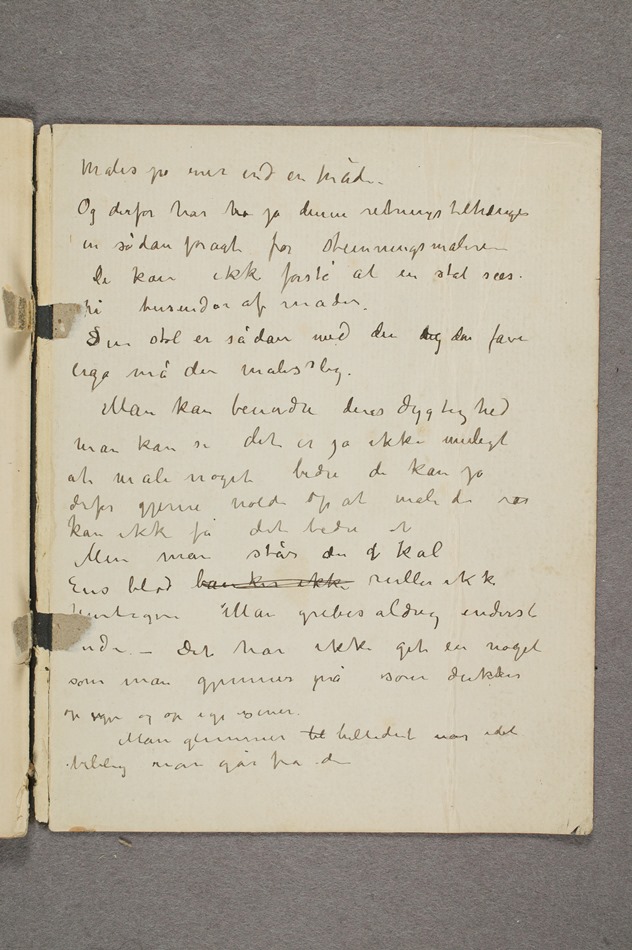 males på mer end en måde.
Og derfor har jo denne retnings tilhænger
en sådan foragt for stemningsmaleren
De kan ikke forstå at en stol sees
på tusender af måder.
En stol er sådan med den og den farve
måde males slig.
Man kan beundre deres dygtighed
man kan se det er jo ikke muligt
at male noget bedre de kan jo
derfor gjerne holde op at male de
kan ikke få det bedre
Men man står der kal
Ens blod banker ikke ruller ikke
Man gribes aldrig inderst
inde. – Det har ikke git en noget
som man gjemmer på som dukker
op og op igjen
Man glemmer til billedet
man går fra